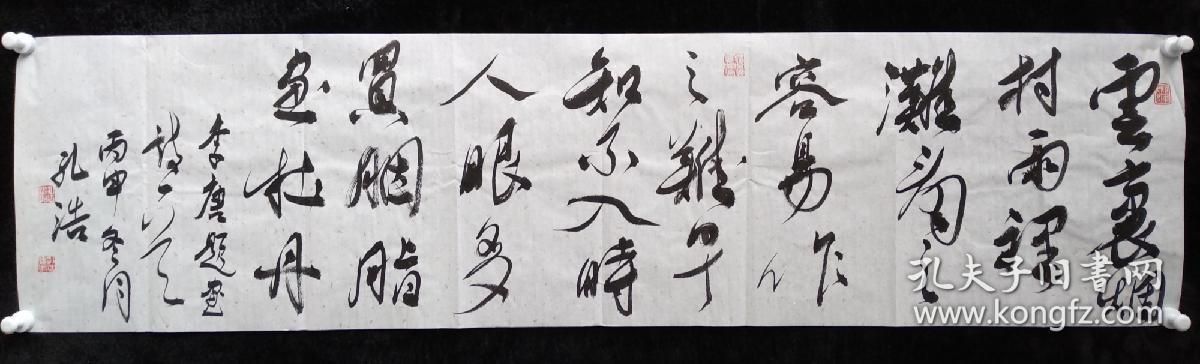 雲裏烟
村雨裡
灘看之
容易作
之難早
知不入時
人眼多
買胭脂
畫牡丹
李唐題畫
詩一首
丙申冬月
孔浩
孔夫子旧书网
www.kongfz.com